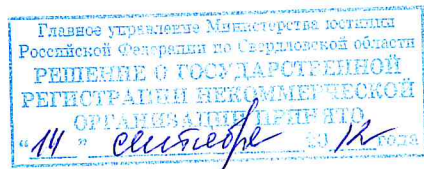 Главное управление Министерства юстиции
Российской Федерации по Свердловской области
РЕШЕНИЕ О ГОСУДАРСТВЕННОЙ
РЕГИСТРАЦИИ НЕКОММЕРЧЕСКОЙ
ОРГАНИЗАЦИИ ПРИНЯТО
"14" сентября 2012 года